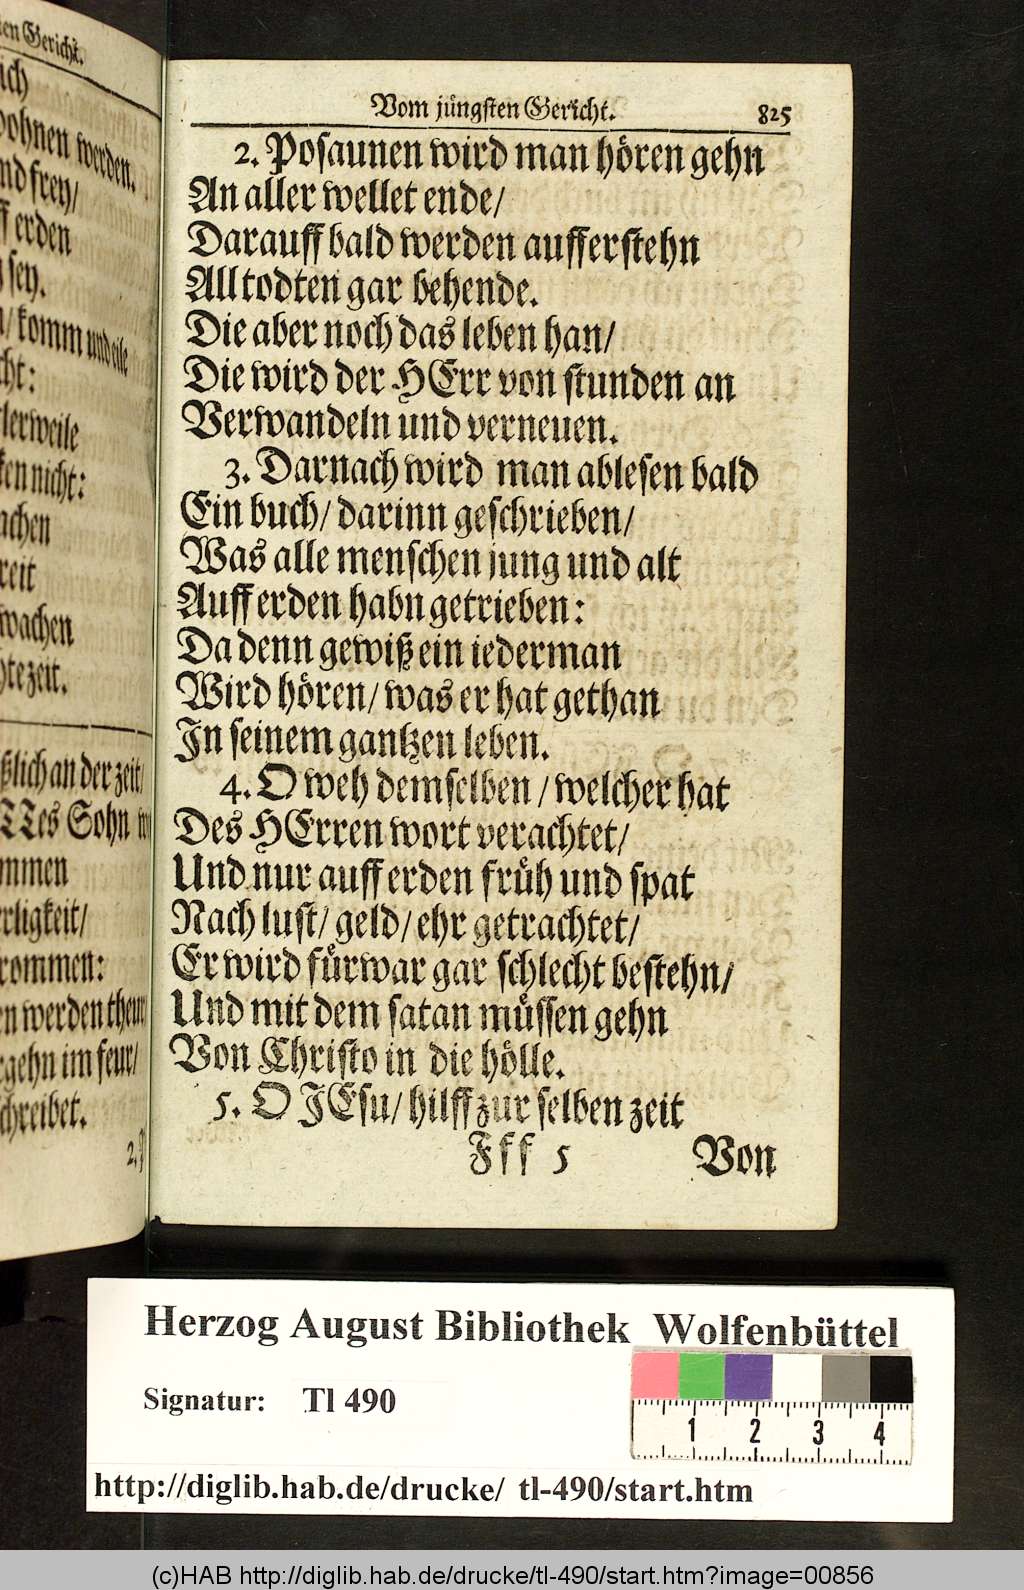 en Gericht.
ich
wohnen werden.
nd frey/
ff erden
sey.
/ komm und eile
cht:
lerweile
ken nicht:
achen
reit
wachen
htezeit.
ßlich an der zeit/
TTes Sohn
mmen
rligkeit/
rommen:
en werden theur
rgehn im feur/
chreibet.
Vom jüngsten Gericht. 825
2. Posaunen wird man hören gehn
An aller wellet ende/
Darauff bald werden aufferstehn
All todten gar behende.
Die aber noch das leben han/
Die wird der HErr von stunden an
Verwandeln und verneuen.
3. Darnach wird man ablesen bald
Ein buch/ darinn geschrieben/
Was alle menschen jung und alt
Auff erden habn getrieben:
Da denn gewiß ein iederman
Wird hören/ was er hat gethan
In seinem gantzen leben.
4. O weh demselben / welcher hat
Des HErren wort verachtet/
Und nur auff erden früh und spat
Nach lust/ geld/ ehr getrachtet/
Er wird fürwar gar schlecht bestehn/
Und mit dem satan müssen gehn
Von Christo in die hölle.
5. O JEsu/ hilff zur selben zeit
Fff 5 Von
Herzog August Bibliothek Wolfenbüttel
Signatur: Tl 490
1 2 3 4
http://diglib.hab.de/drucke/ tl-490/start.htm
(c)HAB http://diglib.hab.de/drucke/tl-490/start.htm?image=00856